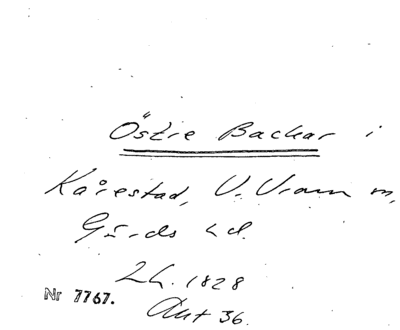 Östre Backar i
Kårestad, V. Vram m,
Gärds hd.
Lh. 1828
Nr 7767.
Akt 36.